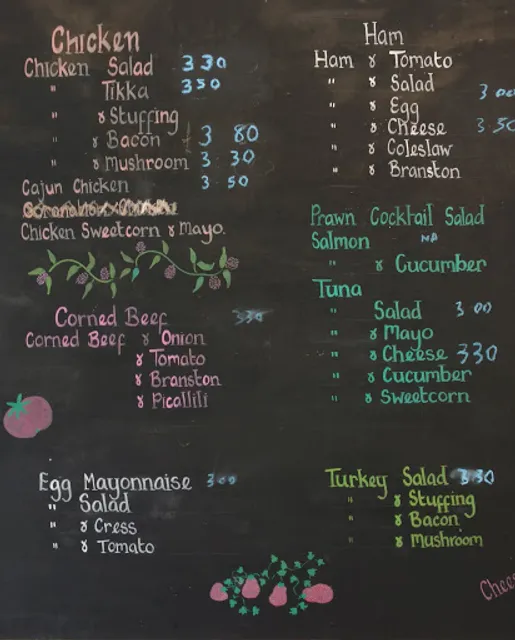 Chicken
Chicken Salad 3 30
" Tikka 3 50
" & Stuffing
" & Bacon 3 80
" & Mushroom 3 30
Cajun Chicken 3 50
Chicken Sweetcorn & Mayo.
Corned Beef 3 30
Corned Beef & Onion
& Tomato
& Branston
& Picallili
Egg Mayonnaise 3 00
" Salad
" & Cress
" & Tomato
Ham
Ham & Tomato
" & Salad 3 00
" & Egg
" & Cheese 3 50
" & Coleslaw
" & Branston
Prawn Cocktail Salad
Salmon
" & Cucumber
Tuna
" Salad 3 00
" & Mayo
" & Cheese 3 30
" & Cucumber
" & Sweetcorn
Turkey Salad 3 30
" & Stuffing
" & Bacon
" & Mushroom